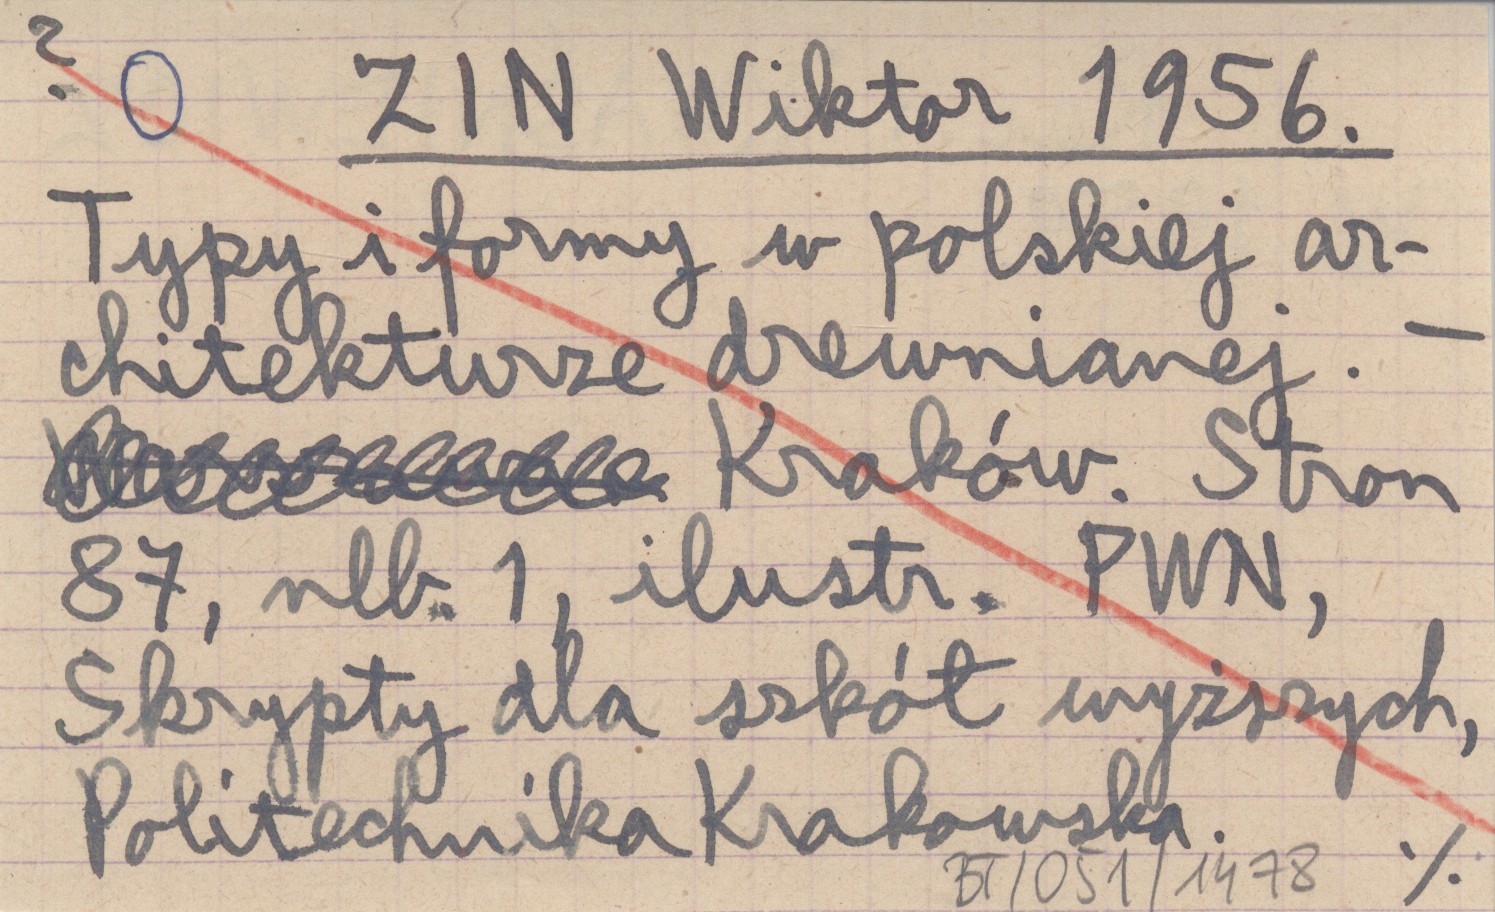 ? O ZIN Wiktor 1956.
Typy i formy w polskiej ar-
chitekturze drewnianej. —
Kraków. Stron
87, nlb. 1, ilustr. PWN,
Skrypty dla szkół wyższych,
Politechnika Krakowska.
BT/051/1478 ./.